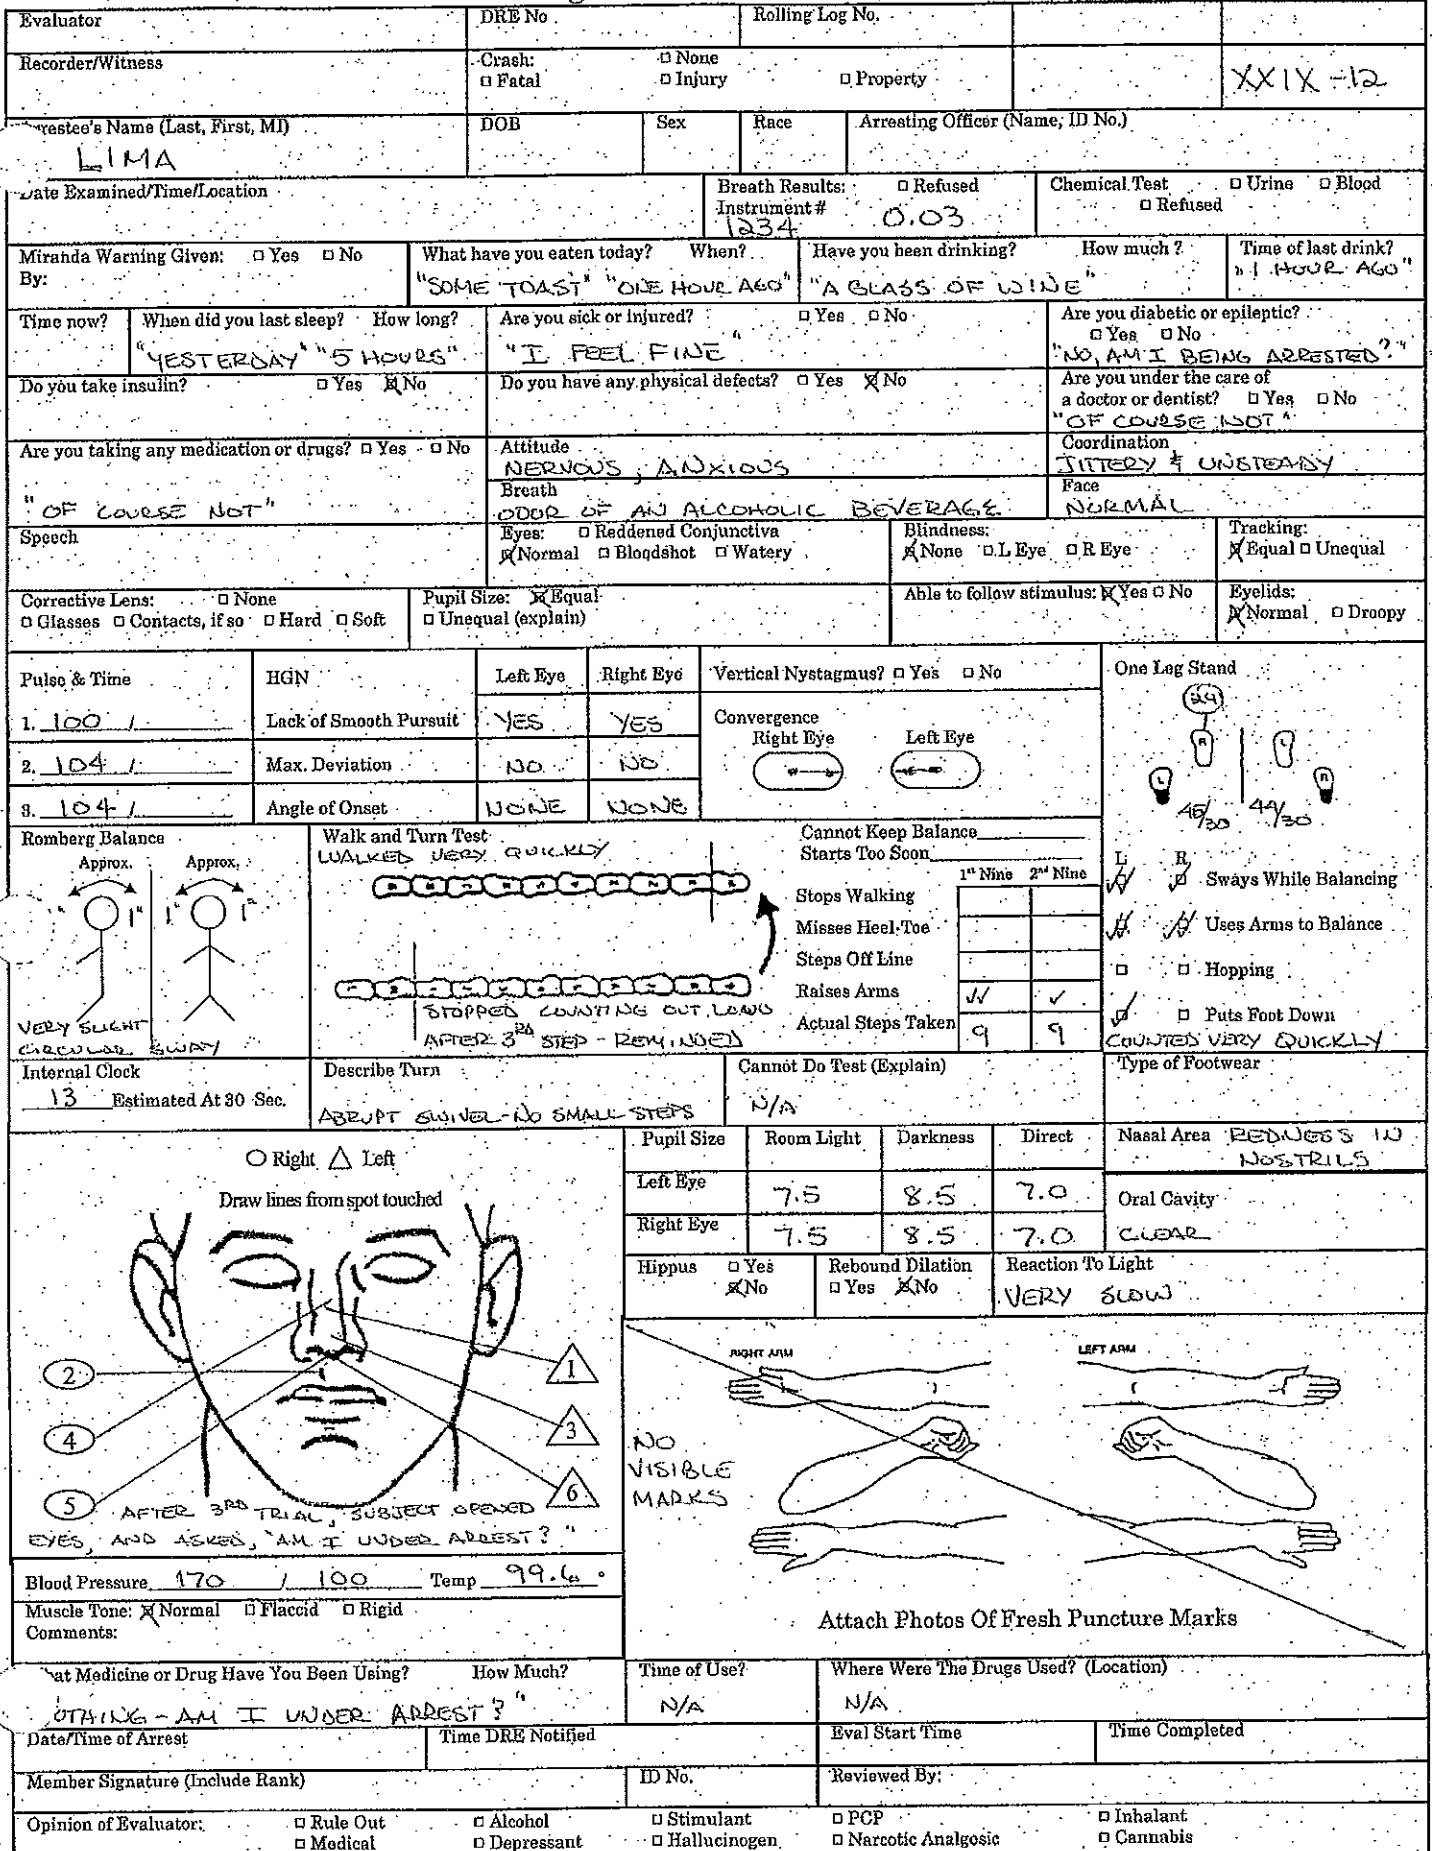 Evaluator
DRE No.
Rolling Log No.
Recorder/Witness
Crash: □ None
□ Fatal □ Injury □ Property
XXIX-12
Arrestee's Name (Last, First, MI)
LIMA
DOB
Sex
Race
Arresting Officer (Name, ID No.)
Date Examined/Time/Location
Breath Results: □ Refused
Instrument #
1234 0.03
Chemical Test □ Urine □ Blood
□ Refused
Miranda Warning Given: □ Yes □ No
By:
What have you eaten today? When?
"SOME TOAST" "ONE HOUR AGO"
Have you been drinking? How much?
"A GLASS OF WINE"
Time of last drink?
"1 HOUR AGO"
Time now?
When did you last sleep? How long?
"YESTERDAY" "5 HOURS"
Are you sick or injured? □ Yes □ No
"I FEEL FINE"
Are you diabetic or epileptic?
□ Yes □ No
"NO, AM I BEING ARRESTED?"
Do you take insulin? □ Yes ☒ No
Do you have any physical defects? □ Yes ☒ No
Are you under the care of
a doctor or dentist? □ Yes □ No
"OF COURSE NOT"
Are you taking any medication or drugs? □ Yes □ No
"OF COURSE NOT"
Attitude
NERVOUS, ANXIOUS
Coordination
JITTERY & UNSTEADY
Breath
ODOR OF AN ALCOHOLIC BEVERAGE
Face
NORMAL
Speech
Eyes: □ Reddened Conjunctiva
☒ Normal □ Bloodshot □ Watery
Blindness:
☒ None □ L Eye □ R Eye
Tracking:
☒ Equal □ Unequal
Corrective Lens: □ None
□ Glasses □ Contacts, if so □ Hard □ Soft
Pupil Size: ☒ Equal
□ Unequal (explain)
Able to follow stimulus: ☒ Yes □ No
Eyelids:
☒ Normal □ Droopy
Pulse & Time
1. 100 /
2. 104 /
3. 104 /
HGN Left Eye Right Eye
Lack of Smooth Pursuit YES YES
Max. Deviation NO NO
Angle of Onset NONE NONE
Vertical Nystagmus? □ Yes □ No
Convergence
Right Eye Left Eye
One Leg Stand
24
R L
L R
45/30 44/30
L R
Sways While Balancing
Uses Arms to Balance
□ □ Hopping
□ Puts Foot Down
COUNTED VERY QUICKLY
Romberg Balance
Approx. Approx.
1" 1" 1" 1"
VERY SLIGHT
CIRCULAR SWAY
Walk and Turn Test
WALKED VERY QUICKLY
STOPPED COUNTING OUT LOUD
AFTER 3RD STEP - REMINDED
Cannot Keep Balance
Starts Too Soon
1st Nine 2nd Nine
Stops Walking
Misses Heel-Toe
Steps Off Line
Raises Arms ✓✓ ✓
Actual Steps Taken 9 9
Internal Clock
13 Estimated At 30 Sec.
Describe Turn
ABRUPT SWIVEL - NO SMALL STEPS
Cannot Do Test (Explain)
N/A
Type of Footwear
○ Right △ Left
Draw lines from spot touched
2
4
5
1
3
6
AFTER 3RD TRIAL, SUBJECT OPENED
EYES, AND ASKED, "AM I UNDER ARREST?"
Pupil Size Room Light Darkness Direct
Left Eye 7.5 8.5 7.0
Right Eye 7.5 8.5 7.0
Nasal Area REDNESS IN
NOSTRILS
Oral Cavity
CLEAR
Hippus □ Yes
☒ No
Rebound Dilation
□ Yes ☒ No
Reaction To Light
VERY SLOW
RIGHT ARM LEFT ARM
NO
VISIBLE
MARKS
Attach Photos Of Fresh Puncture Marks
Blood Pressure 170 / 100 Temp 99.6°
Muscle Tone: ☒ Normal □ Flaccid □ Rigid
Comments:
What Medicine or Drug Have You Been Using? How Much?
NOTHING - AM I UNDER ARREST?"
Time of Use?
N/A
Where Were The Drugs Used? (Location)
N/A
Date/Time of Arrest
Time DRE Notified
Eval Start Time
Time Completed
Member Signature (Include Rank)
ID No.
Reviewed By:
Opinion of Evaluator: □ Rule Out □ Alcohol □ Stimulant □ PCP □ Inhalant
□ Medical □ Depressant □ Hallucinogen □ Narcotic Analgesic □ Cannabis